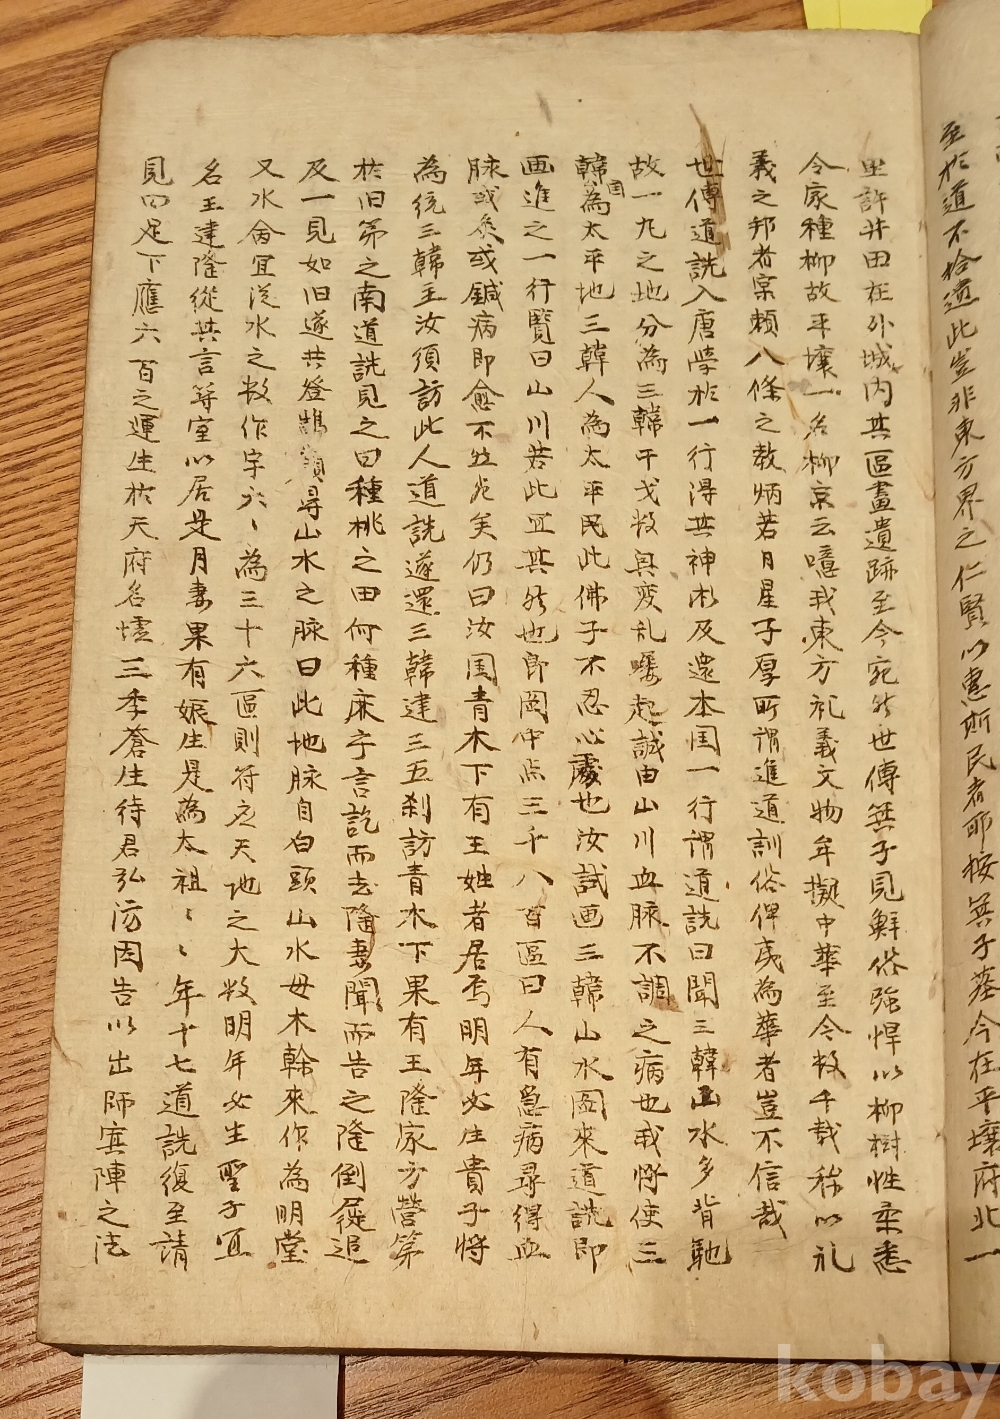 至於道不拾遺此豈非東方界之仁賢以惠斯民者耶按箕子墓今在平壤府北一
里許井田在外城内其區畫遺跡至今宛然世傳箕子見鮮俗強悍以柳樹性柔悉
令家種柳故平壤一名柳京云噫我東方礼義文物牟擬中華至今数千载称以礼
義之邦者寔頼八條之教炳若日星子厚所謂進道訓俗俾夷為華者豈不信哉
世傳道詵入唐學於一行淂其神朮及還本国一行謂道詵曰聞三韓山水多背馳
故一九之地分為三韓干戈数興変乱屡起誠由山川血脉不調之病也我将使三
韓国為太平地三韓人為太平民此佛子不忍心處也汝試画三韓山水圖來道詵即
画進之一行覽曰山川若此宜其然也即圖中点三千八百區曰人有急病尋得血
脉或灸或鍼病即愈不然死矣仍曰汝国青木下有王姓者居焉明年必生貴子将
為統三韓主汝須訪此人道詵遂還三韓建三五刹訪青木下果有王隆家方營第
於旧第之南道詵見之曰種桃之田何種麻乎言訖而去隆妻聞而告之隆倒屣追
及一見如旧遂共登鵠嶺尋山水之脉曰此地脉自白頭山水母木幹來作為明堂
又水命宜從水之数作字六〻為三十六區則符应天地之大数明年必生聖子宜
名王建隆從其言築室以居是月妻果有娠生是為太祖〻〻年十七道詵復至請
見曰足下應六百之運生於天府名墟三季蒼生待君弘済因告以出師寘陣之法
kobay